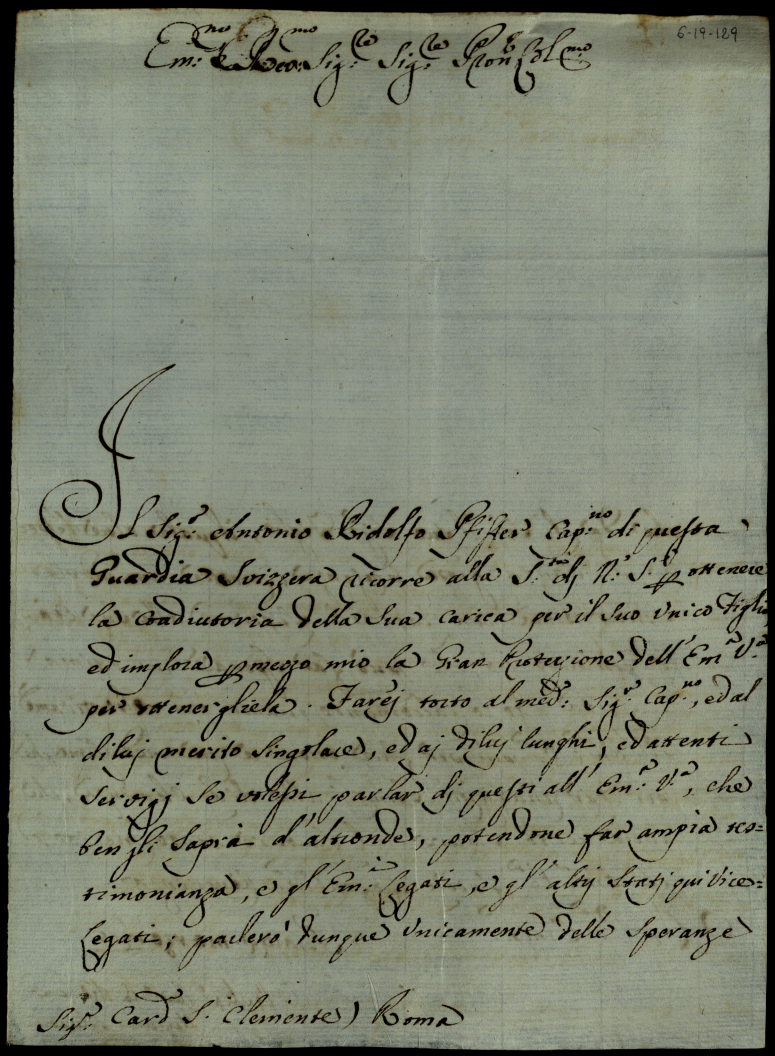 6-19-129
Em:no e Reu:mo Sig:re Sig:re Pron Col:mo
Il Sig:r Antonio Ridolfo Pfiffer Cap:no di questa
Guardia Svizzera ricorre alla S.tà dj N:ro S:re p ottenere
la Coadiutoria della Sua Carica per il Suo Unico Figlio
ed implora p mezzo mio la Gran Protezione dell' Em:a V:a
per ottenergliela. Farej torto al med:o Sig:r Cap:no, ed al
dilui merito Singolare, ed aj dilui lunghi, ed attenti
Servigj Se volessi parlar dj questi all' Em:a V:a, che
ben gli Saprà d'altronde, potendone far ampia tes=
timonianza, e gl' Em:i Legati, e gl' altrj Statj qui Vice=
Legati; parlerò dunque Unicamente delle Speranze
Sig:r Card: S. Clemente) Roma